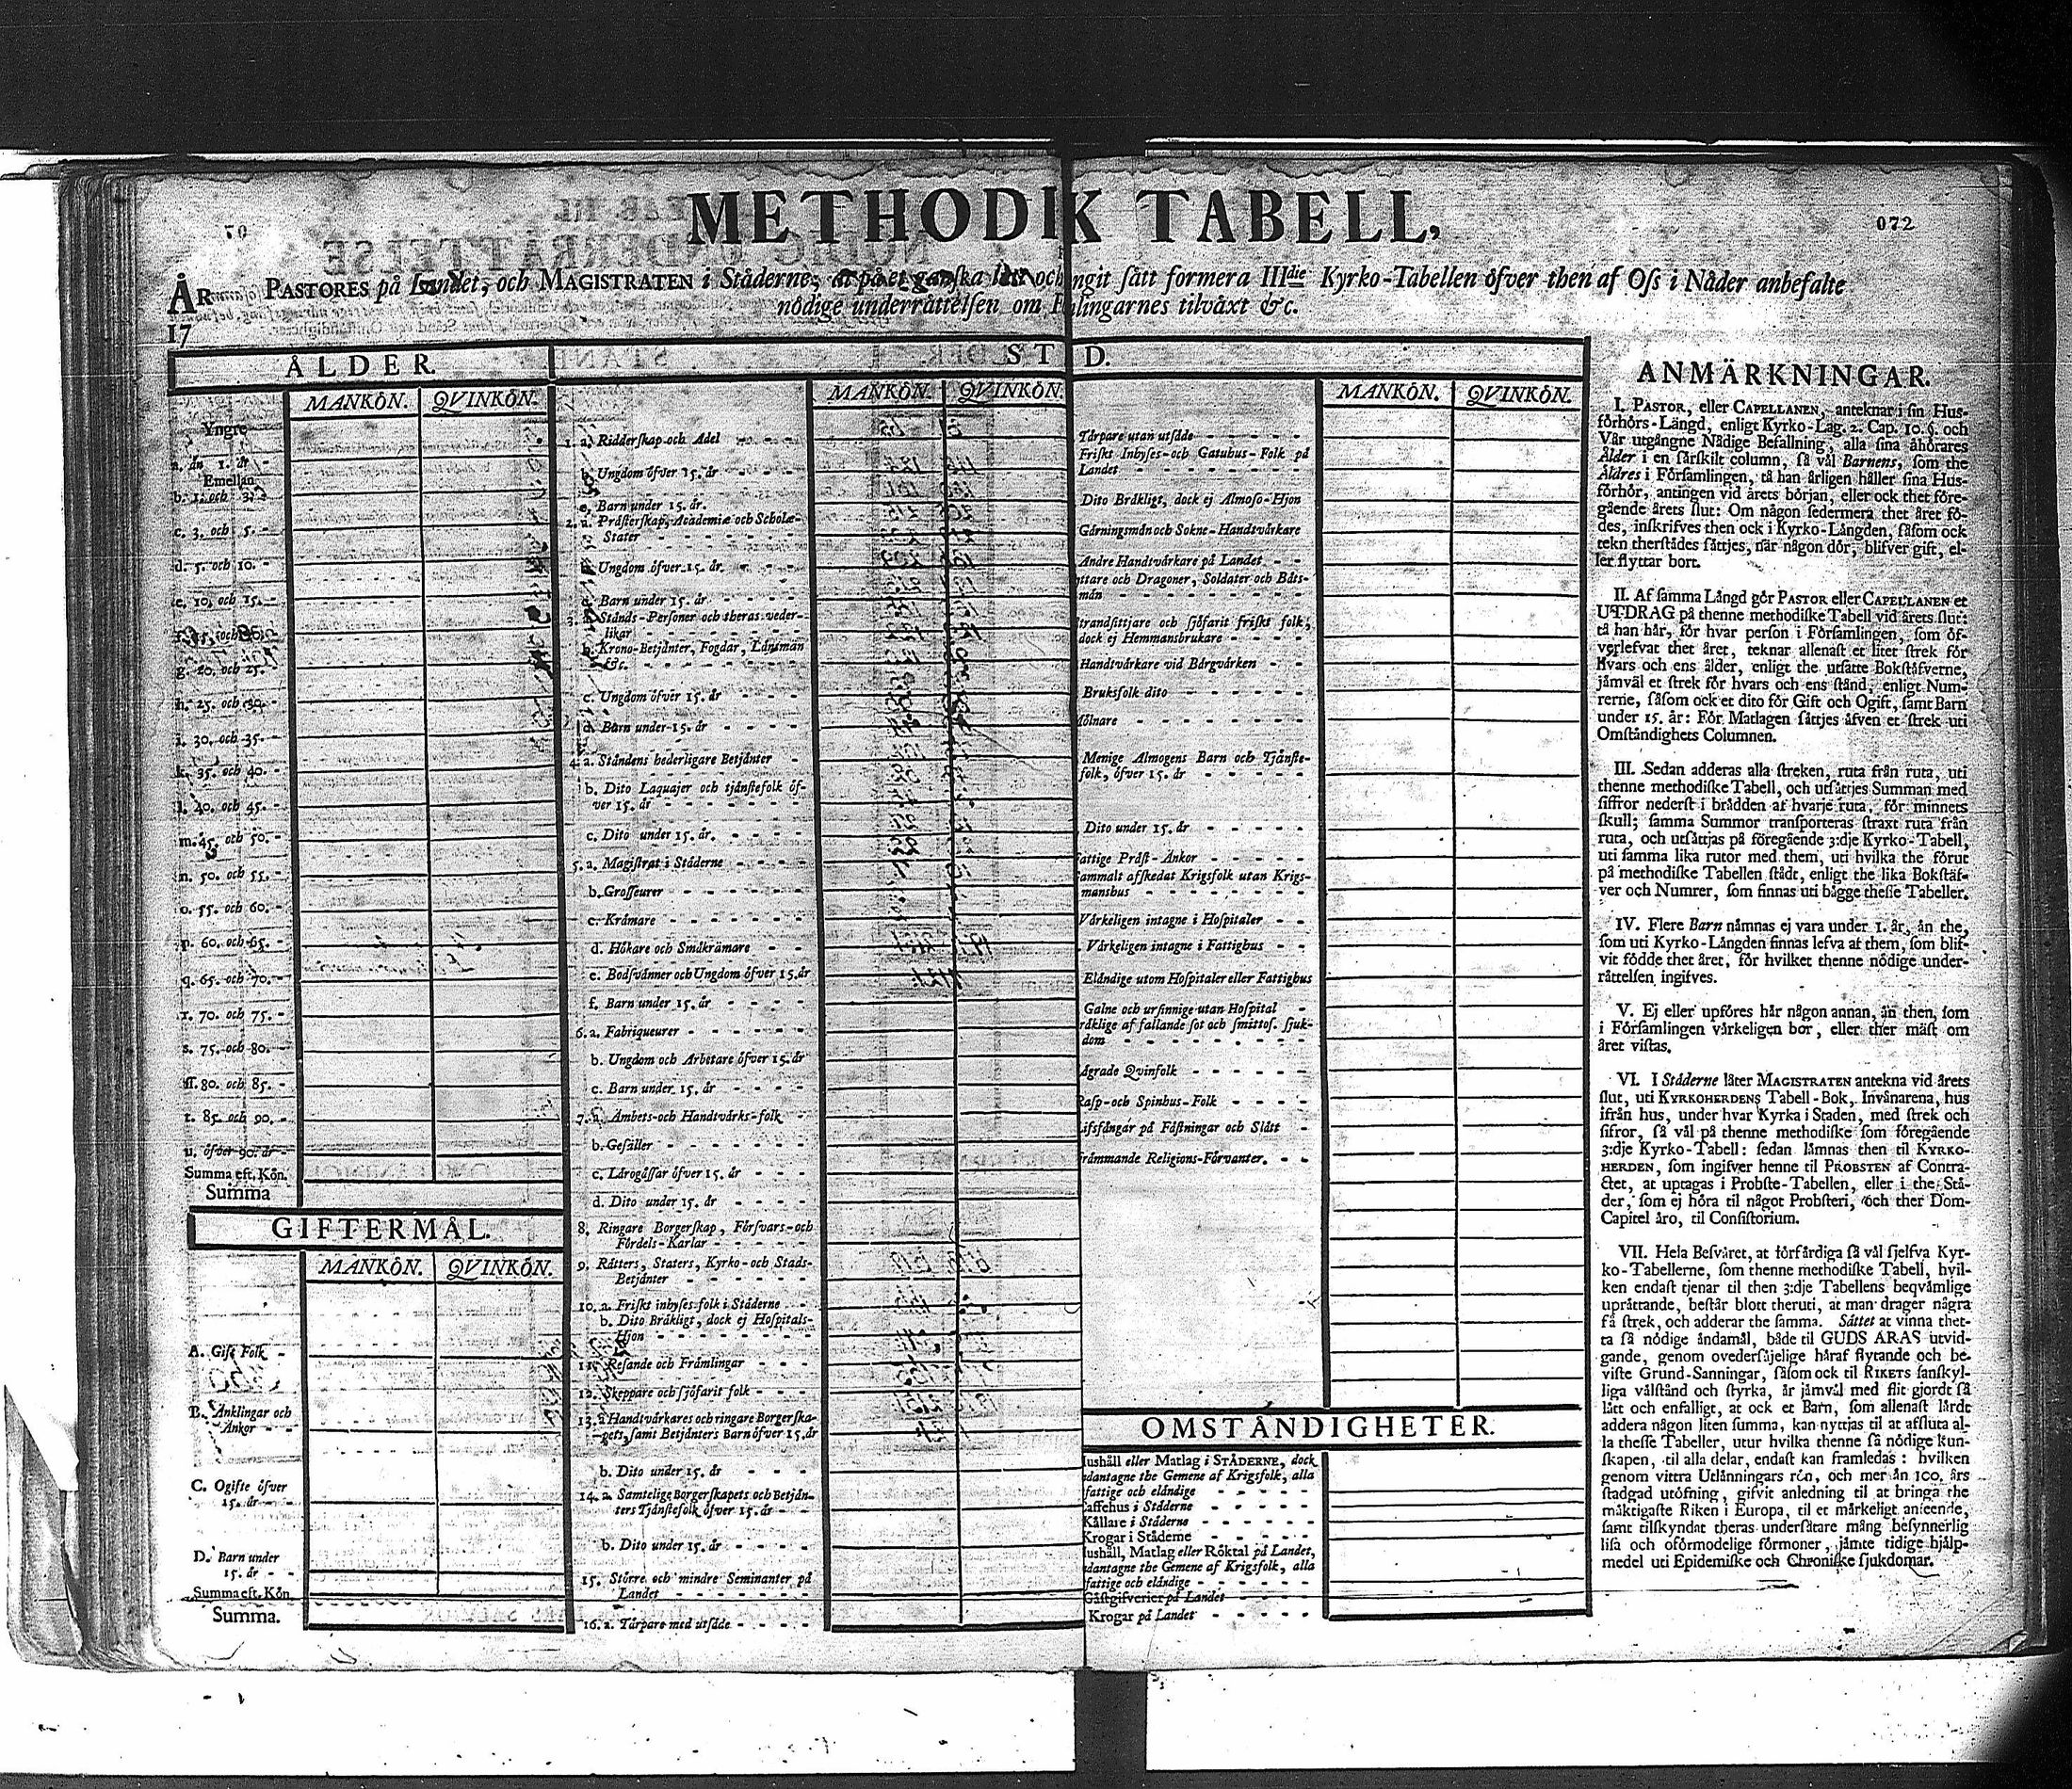 METHODIK TABELL,
70
072
ÅR PASTORES på Landet, och MAGISTRATEN i Städerne, at på et ganska lätt och ngit sätt formera IIIdie Kyrko-Tabellen öfver then af Oss i Nåder anbefalte
17
nödige underrättelsen om F lingarnes tilväxt &c.
ÅLDER.
MANKÖN. QVINKÖN.
Yngre
a. än 1. år
Emellan
b. 1. och 3.
c. 3. och 5.
d. 5. och 10.
e. 10. och 15.
g. 20. och 25.
h. 25. och 30.
i. 30. och 35.
k. 35. och 40.
l. 40. och 45.
m. 45. och 50.
n. 50. och 55.
o. 55. och 60.
p. 60. och 65.
q. 65. och 70.
r. 70. och 75.
s. 75. och 80.
ſſ. 80. och 85.
t. 85. och 90.
u. öfver 90. år
Summa eft. Kön.
Summa
GIFTERMÅL.
MANKÖN. QVINKÖN.
A. Gift Folk
B. Änklingar och
Änkor
C. Ogifte öfver
15. år
D. Barn under
15. år
Summa eft. Kön.
Summa.
ST D.
MANKÖN. QVINKÖN.
1. a. Ridderskap och Adel
b. Ungdom öfver 15. år
c. Barn under 15. år.
2. a. Prästerskap, Academiæ och Scholæ-
Stater
Ungdom öfver 15. år
Barn under 15. år
3. Stånds-Personer och theras veder-
likar
b. Krono-Betjänter, Fogdar, Länsmän
&c.
c. Ungdom öfver 15. år
d. Barn under 15. år
4. a. Ståndens hederligare Betjänter
b. Dito Laquajer och tjänstefolk öf-
ver 15. år
c. Dito under 15. år.
5. a. Magistrat i Städerne
b. Grosseurer
c. Krämare
d. Hökare och Småkrämare
e. Bodsvänner och Ungdom öfver 15. år
f. Barn under 15. år
6. a. Fabriqueurer
b. Ungdom och Arbetare öfver 15. år
c. Barn under 15. år
7. a. Ämbets- och Handtvärks-folk
b. Gesäller
c. Lärogåssar öfver 15. år
d. Dito under 15. år
8. Ringare Borgerskap, Försvars- och
Fördels-Karlar
9. Rätters, Staters, Kyrko- och Stads-
Betjänter
10. a. Friskt inhyses-folk i Städerne
b. Dito Bräkligt, dock ej Hospitals-
Hjon
11. Resande och Främlingar
12. Skeppare och sjöfarit folk
13. a. Handtvärkares och ringare Borgerska-
pets, samt Betjänters Barn öfver 15. år
b. Dito under 15. år
14. a. Samtelige Borgerskapets och Betjän-
ters Tjänstefolk öfver 15. år
b. Dito under 15. år
15. Större och mindre Seminanter på
Landet
16. a. Tärpare med utsäde
MANKÖN. QVINKÖN.
Tärpare utan utsäde
Friskt Inhyses- och Gatuhus-Folk på
Landet
Dito Bräkligt, dock ej Almoso-Hjon
Gärningsmän och Sokne-Handtvärkare
Andre Handtvärkare på Landet
ttare och Dragoner, Soldater och Båts-
män
trandsittjare och sjöfarit friskt folk,
dock ej Hemmansbrukare
Handtvärkare vid Bärgvärken
Bruksfolk dito
Mölnare
Menige Almogens Barn och Tjänste-
folk, öfver 15. år
Dito under 15. år
attige Präst-Änkor
ammalt afskedat Krigsfolk utan Krigs-
manshus
Värkeligen intagne i Hospitaler
Värkeligen intagne i Fattighus
Eländige utom Hospitaler eller Fattighus
Galne och ursinnige utan Hospital
räklige af fallande sot och smittos. sjuk-
dom
ägrade Qvinfolk
Rasp- och Spinhus-Folk
ifsfångar på Fästningar och Slått
främmande Religions-Förvanter.
OMSTÄNDIGHETER.
ushåll eller Matlag i STÄDERNE, dock
dantagne the Gemene af Krigsfolk, alla
fattige och eländige
affehus i Städerne
Källare i Städerne
Krogar i Städerne
ushåll, Matlag eller Röktal på Landet,
dantagne the Gemene af Krigsfolk, alla
fattige och eländige
Gästgifverier på Landet
Krogar på Landet
ANMÄRKNINGAR.
I. PASTOR, eller CAPELLANEN, anteknar i sin Hus-
förhörs-Längd, enligt Kyrko-Lag. 2. Cap. 10. §. och
Vår utgångne Nådige Befallning, alla sina åhörares
Ålder i en särskilt column, så väl Barnens, som the
Äldres i Församlingen, tå han årligen håller sina Hus-
förhör, antingen vid årets början, eller ock thet före-
gående årets slut: Om någon sedermera thet året fö-
des, inskrifves then ock i Kyrko-Längden, såsom ock
tekn therstädes sättjes, när någon dör, blifver gift, el-
ler flyttar bort.
II. Af samma Längd gör PASTOR eller CAPELLANEN et
UTDRAG på thenne methodiske Tabell vid årets slut:
tå han här, för hvar person i Församlingen, som öf-
verlefvat thet året, teknar allenast et litet strek för
hvars och ens ålder, enligt the utsatte Bokstäfverne,
jämväl et strek för hvars och ens stånd, enligt Num-
rerne, såsom ock et dito för Gift och Ogift, samt Barn
under 15. år: För Matlagen sättjes äfven et strek uti
Omständighets Columnen.
III. Sedan adderas alla streken, ruta från ruta, uti
thenne methodiske Tabell, och utsättjes Summan med
siffror nederst i brädden af hvarje ruta, för minnets
skull; samma Summor transporteras straxt ruta från
ruta, och utsättjas på föregående 3:dje Kyrko-Tabell,
uti samma lika rutor med them, uti hvilka the förut
på methodiske Tabellen städt, enligt the lika Bokstäf-
ver och Numrer, som finnas uti bägge thesse Tabeller.
IV. Flere Barn nämnas ej vara under 1. år, än the,
som uti Kyrko-Längden finnas lefva af them, som blif-
vit födde thet året, för hvilket thenne nödige under-
rättelsen ingifves.
V. Ej eller upföres här någon annan, än then, som
i Församlingen värkeligen bor, eller ther mäst om
året vistas.
VI. I Städerne låter MAGISTRATEN antekna vid årets
slut, uti KYRKOHERDENS Tabell-Bok, Invånarena, hus
ifrån hus, under hvar Kyrka i Staden, med strek och
sifror, så väl på thenne methodiske som föregående
3:dje Kyrko-Tabell: sedan lämnas then til KYRKO-
HERDEN, som ingifver henne til PROBSTEN af Contra-
ctet, at uptagas i Probste-Tabellen, eller i the Stä-
der, som ej höra til något Probsteri, och ther Dom-
Capitel äro, til Consistorium.
VII. Hela Besväret, at förfärdiga så väl sjelfva Kyr-
ko-Tabellerne, som thenne methodiske Tabell, hvil-
ken endast tjenar til then 3:dje Tabellens beqvämlige
uprättande, består blott theruti, at man drager några
få strek, och adderar the samma. Sättet at vinna thet-
ta så nödige ändamål, både til GUDS ÄRAS utvid-
gande, genom ovedersäjelige häraf flytande och be-
viste Grund-Sanningar, såsom ock til RIKETS sanskyl-
liga välstånd och styrka, är jämväl med flit gjordt så
lätt och enfalligt, at ock et Barn, som allenast lärdt
addera någon liten summa, kan nyttjas til at afsluta al-
la thesse Tabeller, utur hvilka thenne så nödige kun-
skapen, til alla delar, endast kan framledas: hvilken
genom vittra Utlänningars rön, och mer än 100. års
stadgad utöfning, gifvit anledning til at bringa the
mäktigaste Riken i Europa, til et märkeligt anseende,
samt tilskyndat theras undersåtare mång besynnerlig
lisa och oförmodelige förmoner, jämte tidige hjälp-
medel uti Epidemiske och Chroniske sjukdomar.